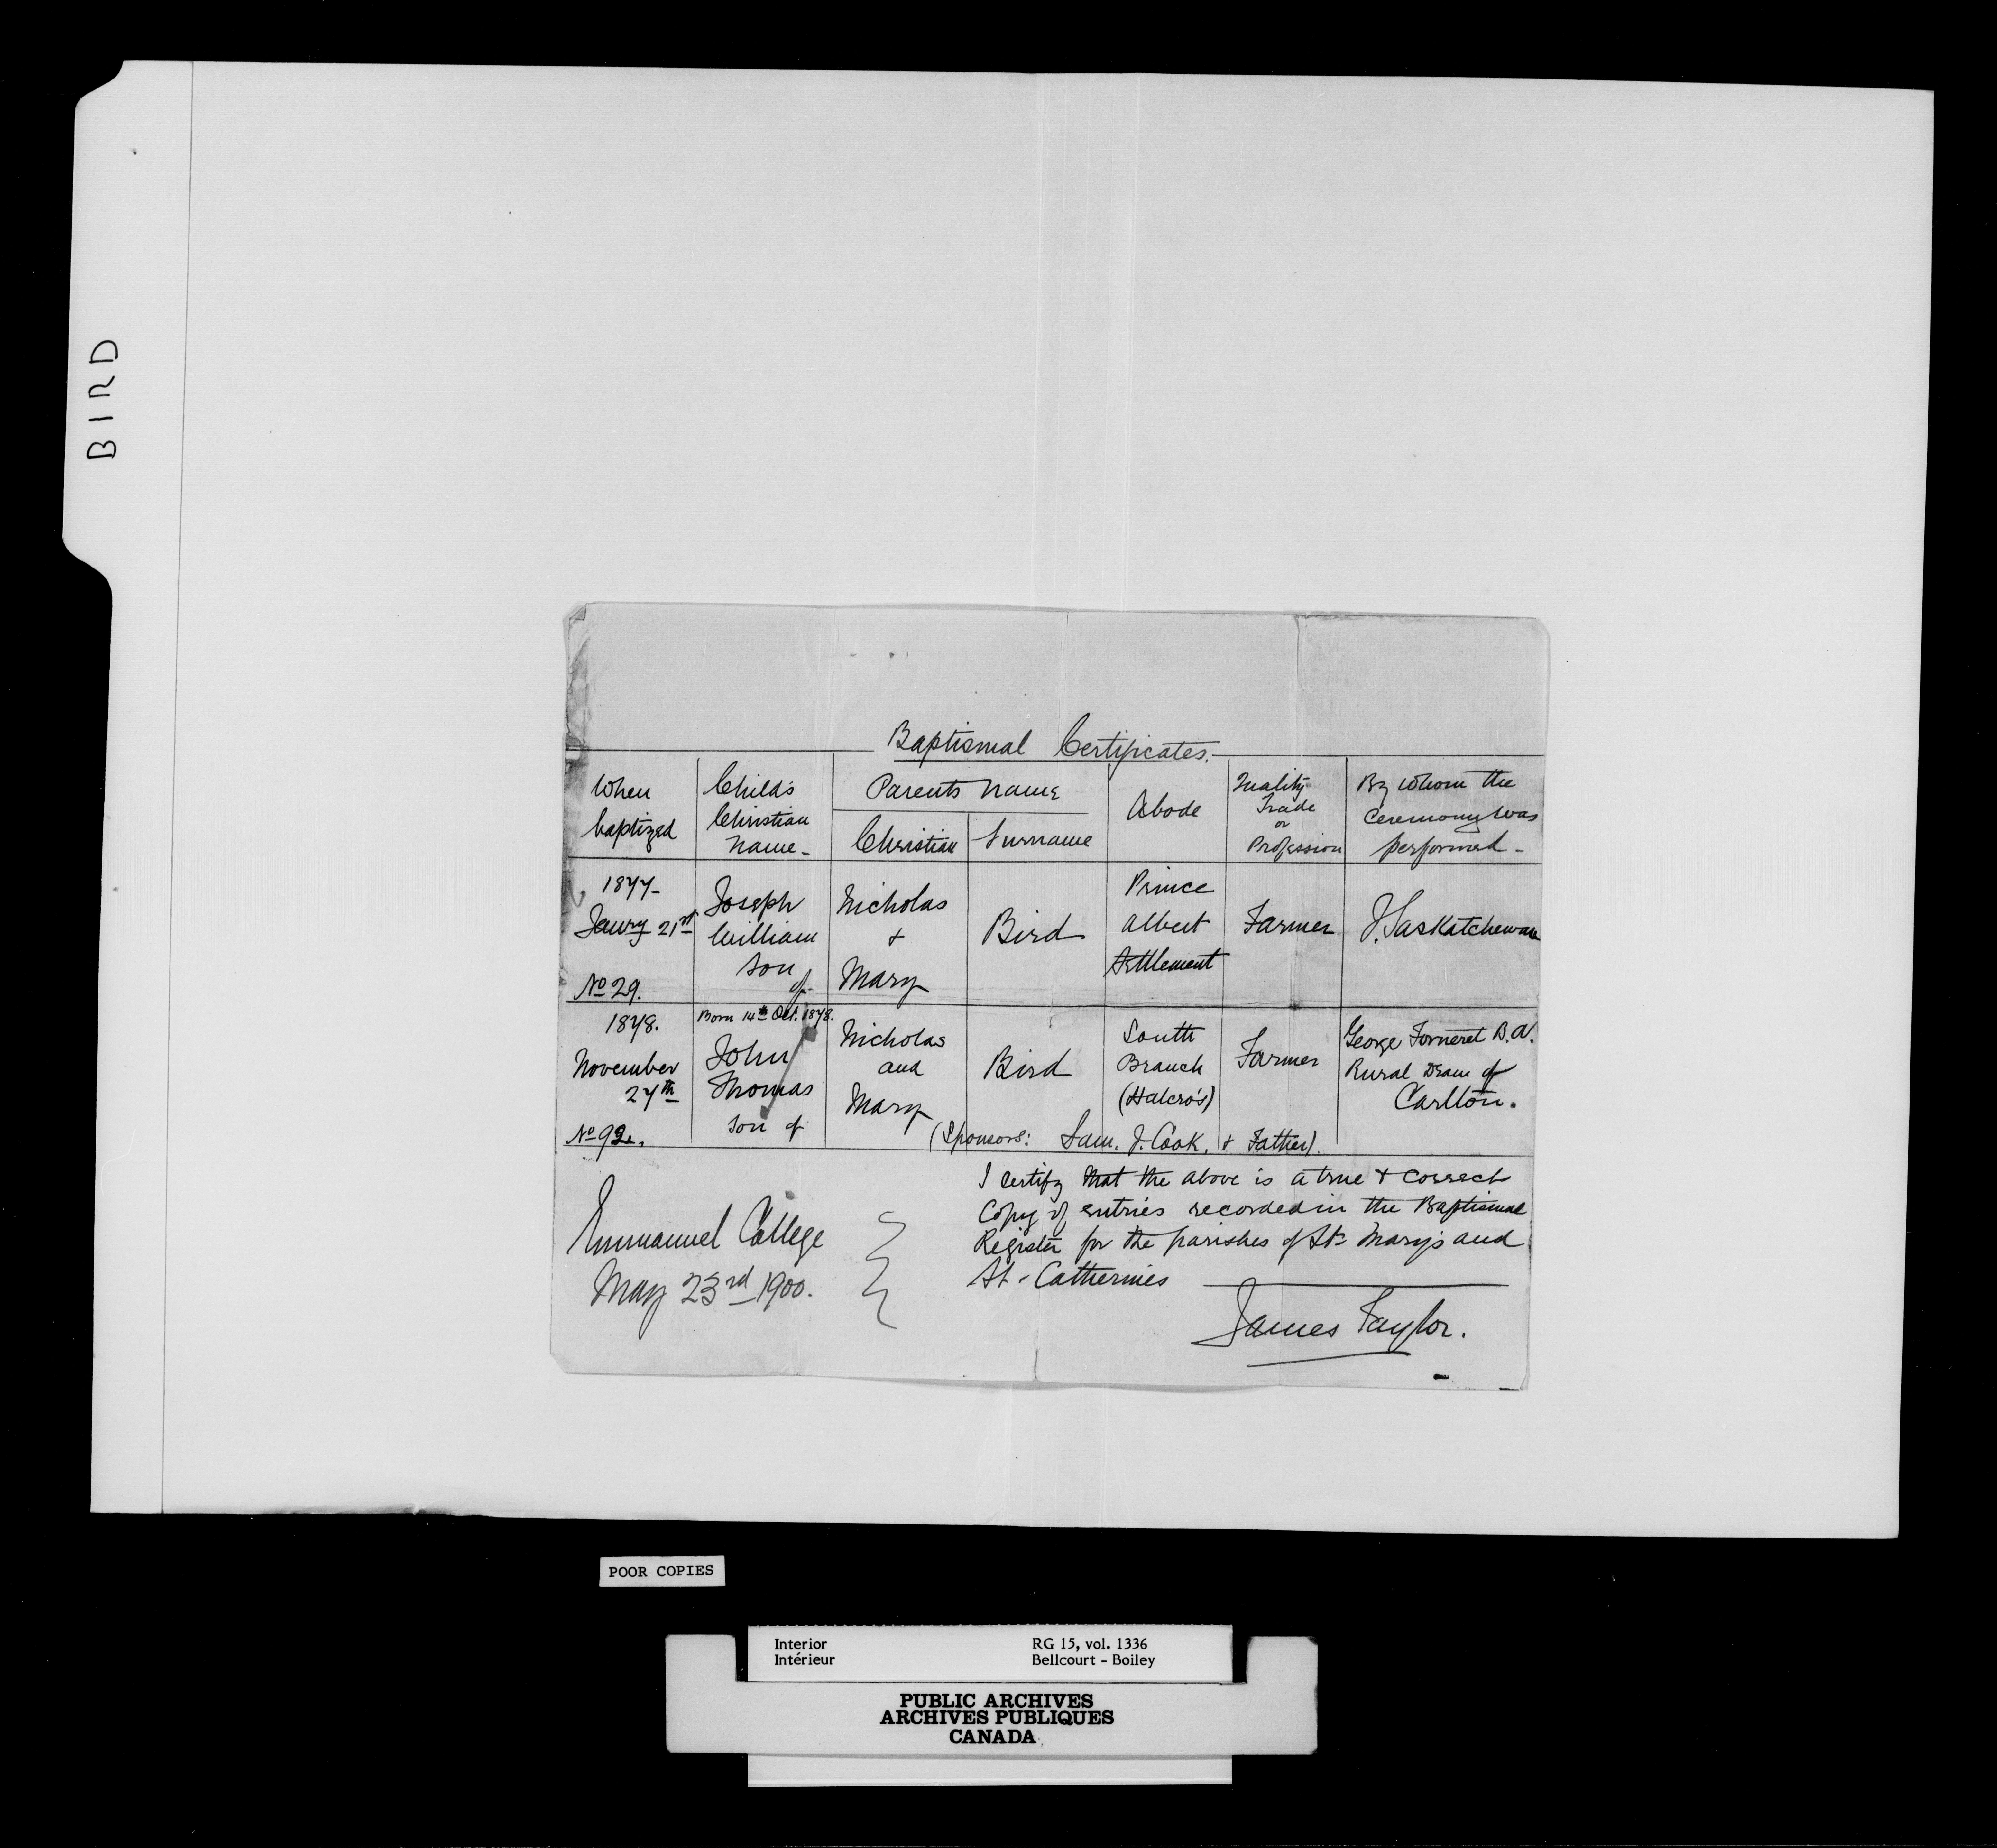 BIRD
Baptismal Certificates.
When baptized
Child's Christian Name -
Parents Name
Christian
Surname
Abode
Quality Trade or Profession
By Whom the Ceremony was performed -
1877-
Jaury 21st
No 29.
Joseph
William
Son of
Nicholas
&
Mary
Bird
Prince
Albert
Settlement
Farmer
J. Saskatchewan
1878.
November
27th
No 92.
Born 14th Oct. 1878.
John
Thomas
Son of
Nicholas
and
Mary
Bird
South
Branch
(Halcro's)
Farmer
George Forneret B.A.
Rural Dean of
Carlton.
(Sponsors: Sam. J. Cook, & Father).
I certify that the above is a true & correct
Copy of entries recorded in the Baptismal
Register for the parishes of St. Mary's and
St. Catherines
Emmanuel College
May 23rd 1900.
James Taylor.
POOR COPIES
Interior RG 15, vol. 1336
Intérieur Bellcourt - Boiley
PUBLIC ARCHIVES
ARCHIVES PUBLIQUES
CANADA